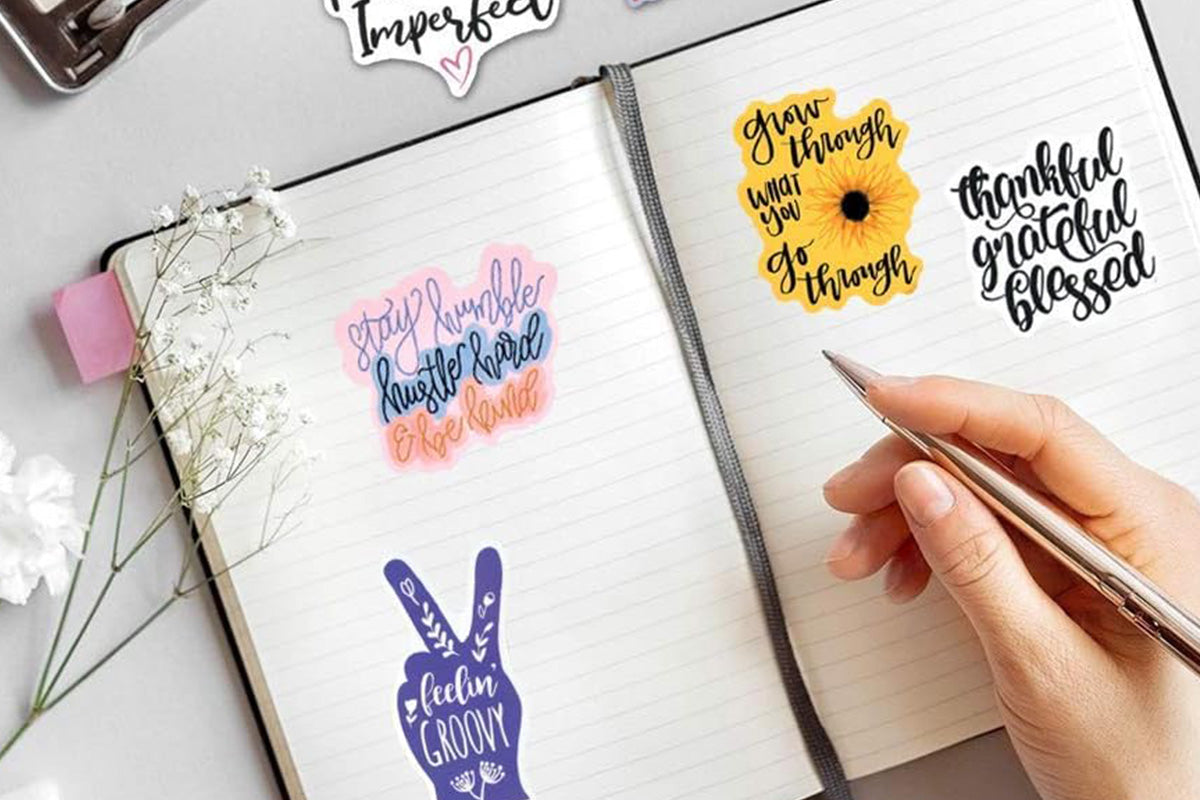 Imperfect
stay humble
hustle hard
& be kind
feelin'
GROOVY
grow
through
WHAT
YOU
go
through
thankful
grateful
blessed